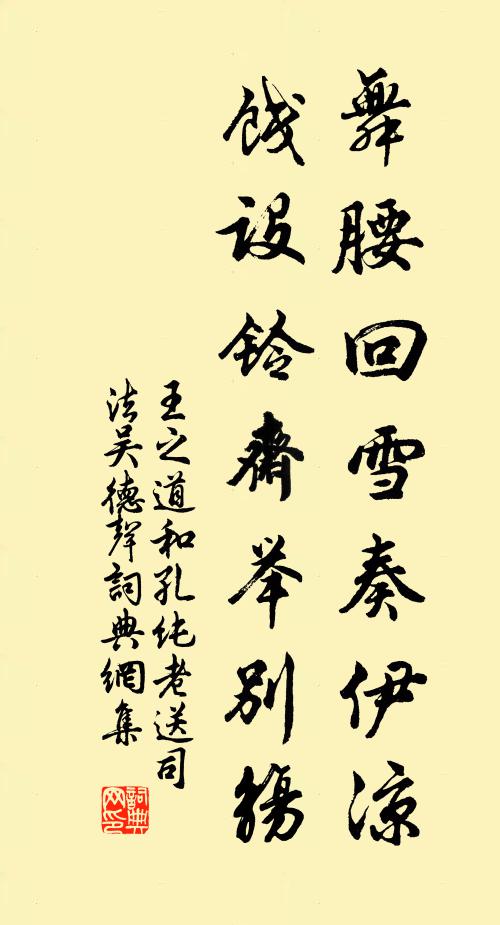 舞腰回雪奏伊凉
饯设铃斋举别觞
王之道和孔纯老送司
法吴德声词典网集
詞典
网印